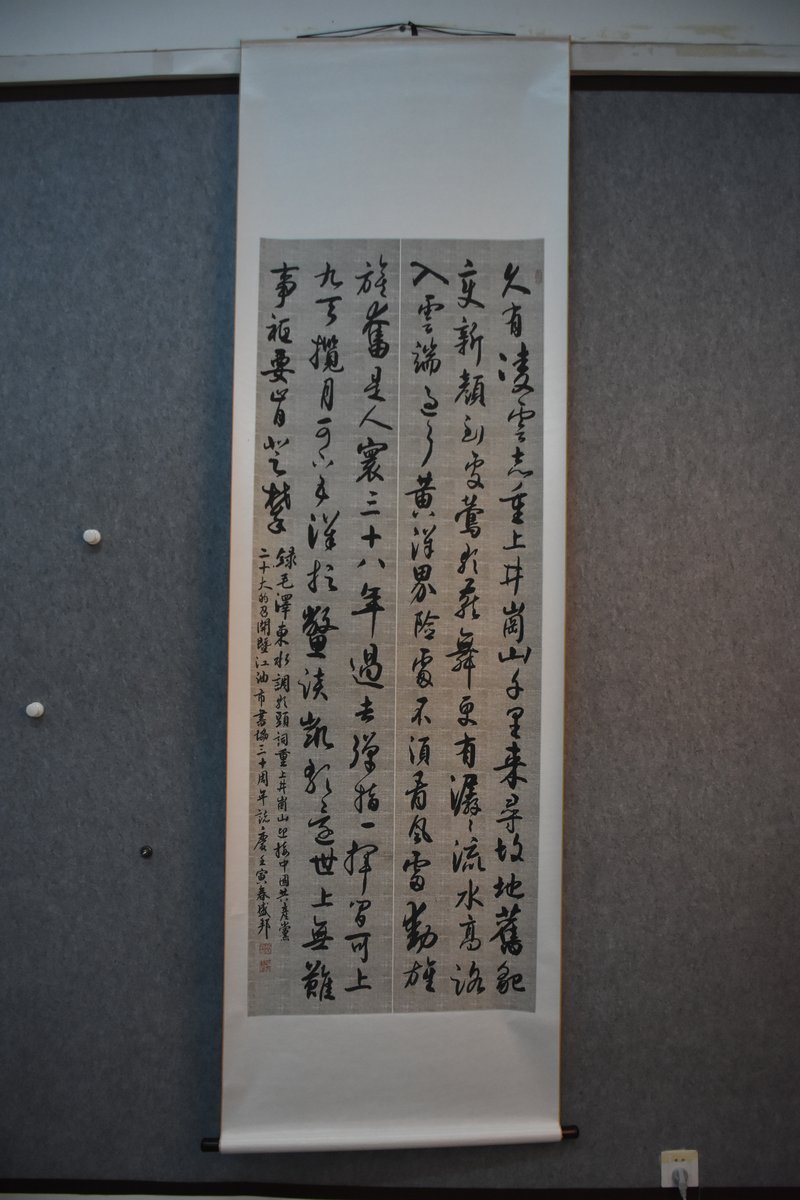 久有凌雲志重上井崗山千里来尋故地舊貌
变新顏到處鶯歌燕舞更有潺々流水高路
入雲端過了黄洋界險處不須看風雷動旌
旗奮是人寰三十八年過去彈指一揮間可上
九天攬月可下五洋捉鱉談凱歌還世上無難
事祇要肯登攀
錄毛澤東水調歌頭詞重上井崗山迎接中國共產黨
二十大的召開暨江油市書協三十周年誌慶壬寅春盛邦